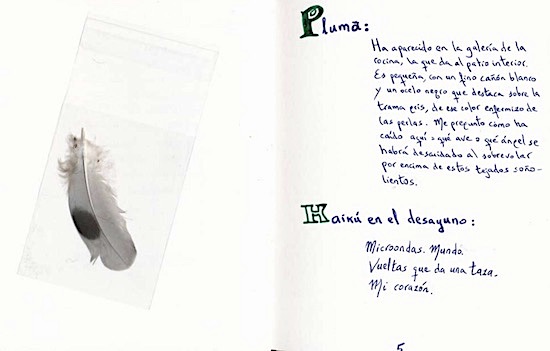 Pluma:
Ha aparecido en la galería de la
cocina, la que da al patio interior.
Es pequeña, con un fino cañón blanco
y un ocelo negro que destaca sobre la
trama gris, de ese color enfermizo de
las perlas. Me pregunto cómo ha
caído aquí o qué ave o qué ángel se
habrá descuidado al sobrevolar
por encima de estos tejados soño-
lientos.
Haikú en el desayuno:
Microondas. Mundo.
Vueltas que da una taza.
Mi corazón.
5